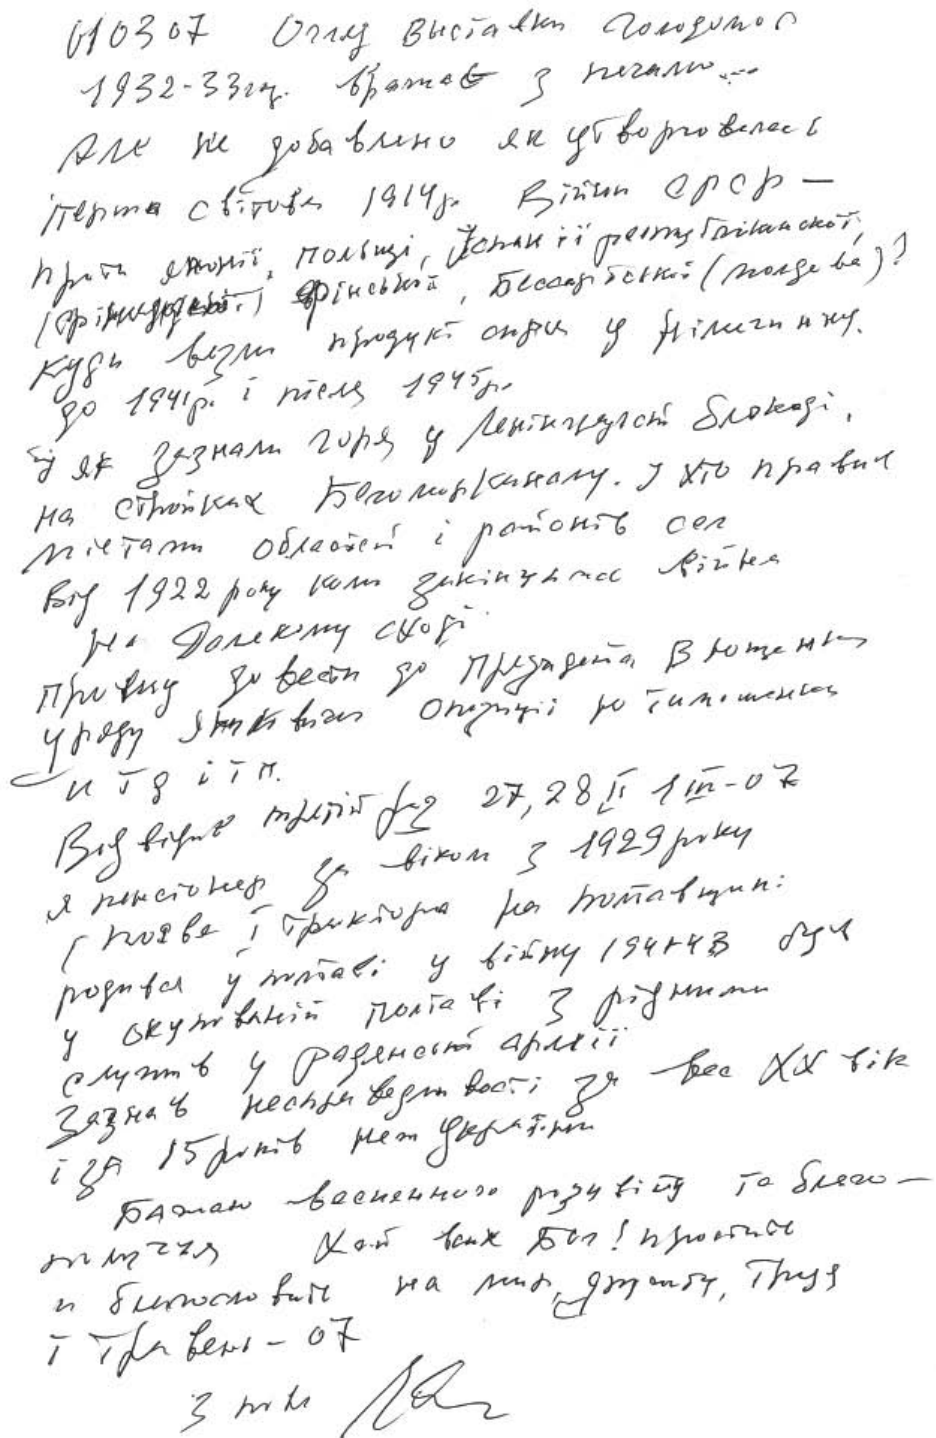 010307 Огляд виставки Голодомор
1932-33рр. вражає з печаллю...
Але не добавлено як утворювалась
перша світова 1914р. Війни СРСР –
проти Японії, Польщі, Іспанії республіканської,
фінської, Бессарабської (Молдова)?
Куди везли продукти у Німеччину.
до 1941р. і після 1945р.
як зазнали горя у Ленінградській блокаді,
на стройках Беломорканалу. І хто правив
містами областей і районів сел
від 1922 року коли закінчилася війна
на Далекому сході.
Прошу довести до Президента В Ющенка
уряду Януковича опозиції Ю Тимошенка
и т д і т п.
Відвідав третій раз 27, 28 II 1 III-07
я пенсіонер за віком з 1929 року
(поява I трактора на Полтавщині
родився у Полтаві у війну 1941-43 був
у окупованій Полтаві з рідними
служив у радянській армії
Зазнав несправедливості за вес XX вік
і за 15 років неза України
Бажаю весненного розвитку та благо–
получчя Хай вам Бог! простить
и благословить на мир, дружбу, труд
і травень – 07
З пов